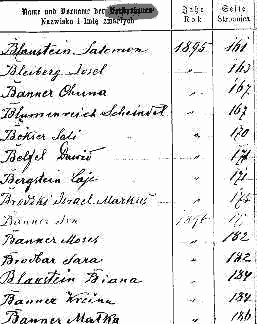 Name und Vorname der Verstorbenen Jahr Seite
Nazwisko i imię zmarłych Rok Stronica
Blaustein Salomon 1895 161
Bleiberg Josel " 163
Banner Chuna " 167
Blumenreich Scheindel " 167
Bokser Sali " 170
Belfel Dawid " 171
Bergstein Caje " 171
Brodzki Israel Markus " 175
Banner 1896
Banner Moses " 182
Brodbar Sara " 182
Blaustein Biana " 184
Banner " 184
Banner Matka " 186